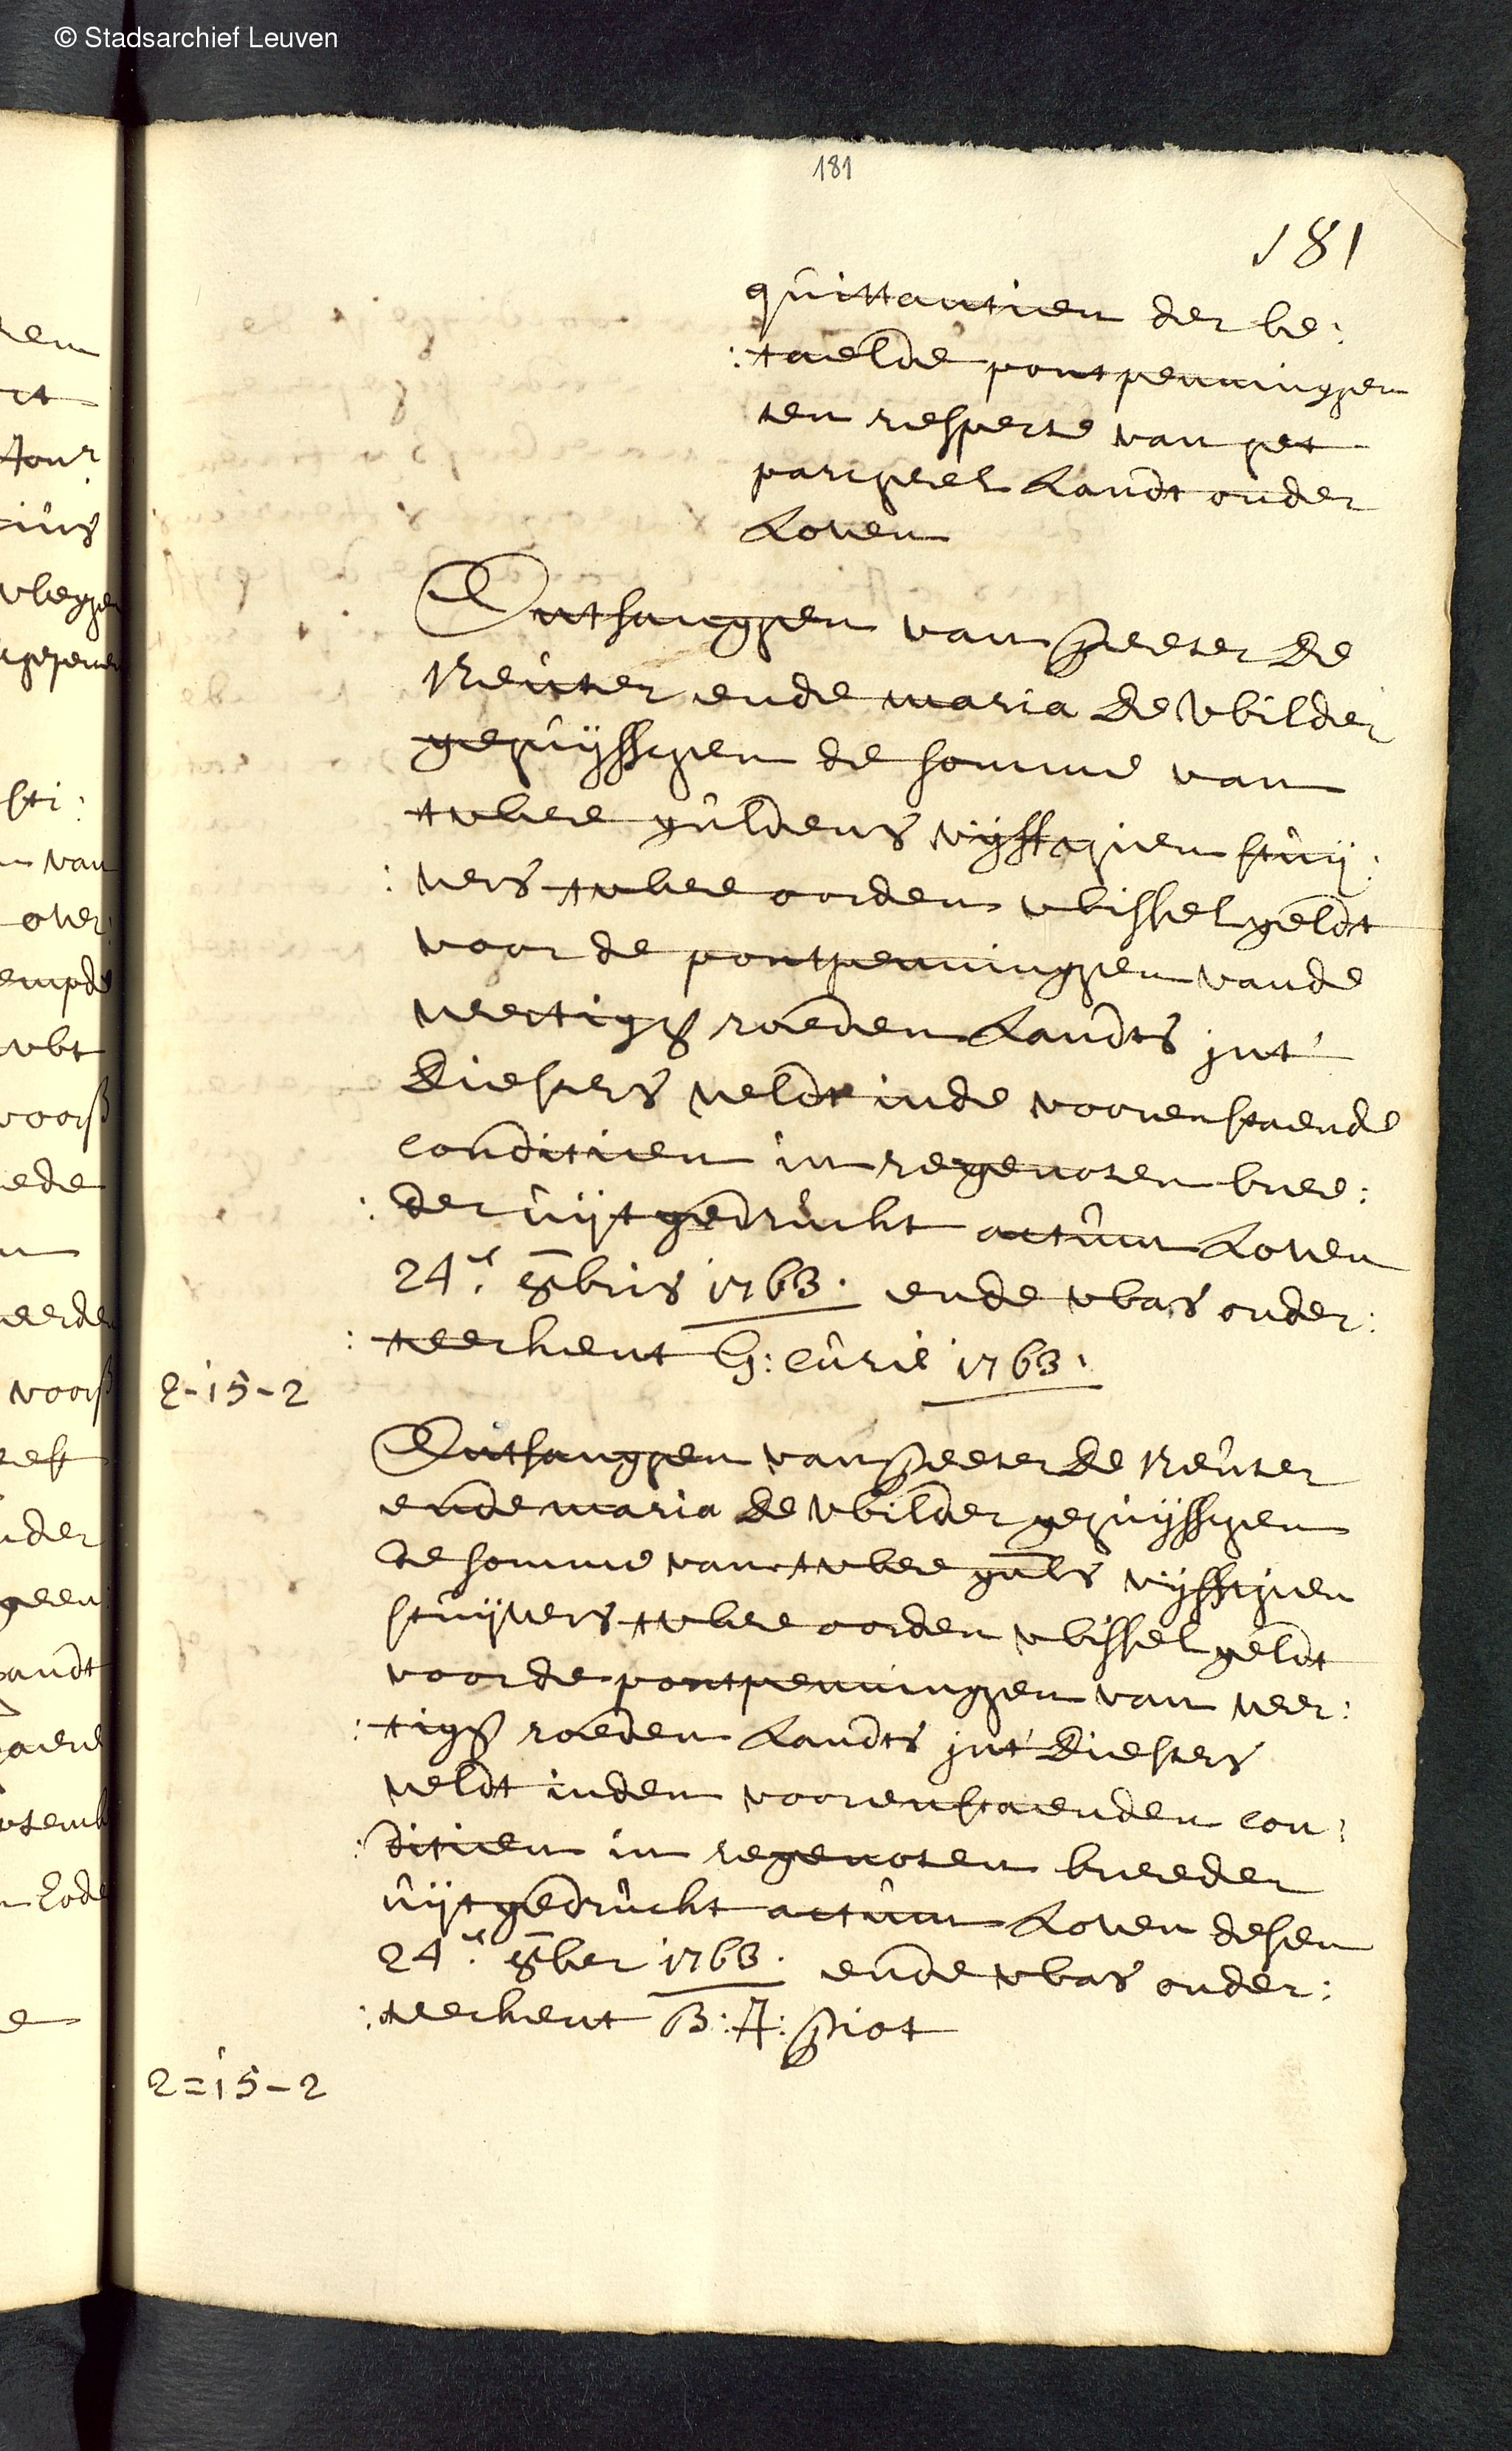 © Stadsarchief Leuven
181
181
quittantien der be:
:taelde pontpenninghen
ten respecte van het
parcheel Landt onder
Loven
Ontfanghen van Peeter De
Reuter ende maria De Wilder
gehuijsschen de somme van
twee guldens vijfthien stuij:
:vers twee oorden wissel geldt
voor de pontpenninghen vande
veertigh roeden Landts jnt'
Diesters veldt inde voorenstaende
conditien in regenoten bree:
:der uijtgedruckt actum Loven
24.e 8bris 1763. ende was onder:
:teeckent G: Curié 1763.
2-15-2
Ontfanghen van Peeter De Reuter
ende maria De Wilder gehuijsschen
de somme van twee guls vijfthien
stuijvers twee oorden wissel geldt
voor de pontpenninghen van veer:
:tigh roeden Landts jnt' Diesters
veldt inden voorenstaenden con:
:ditien in regenoten breeder
uijtgedruckt actum Loven desen
24.e 8ber 1763. ende was onder:
:teeckent B: A: Piot
2=15-2